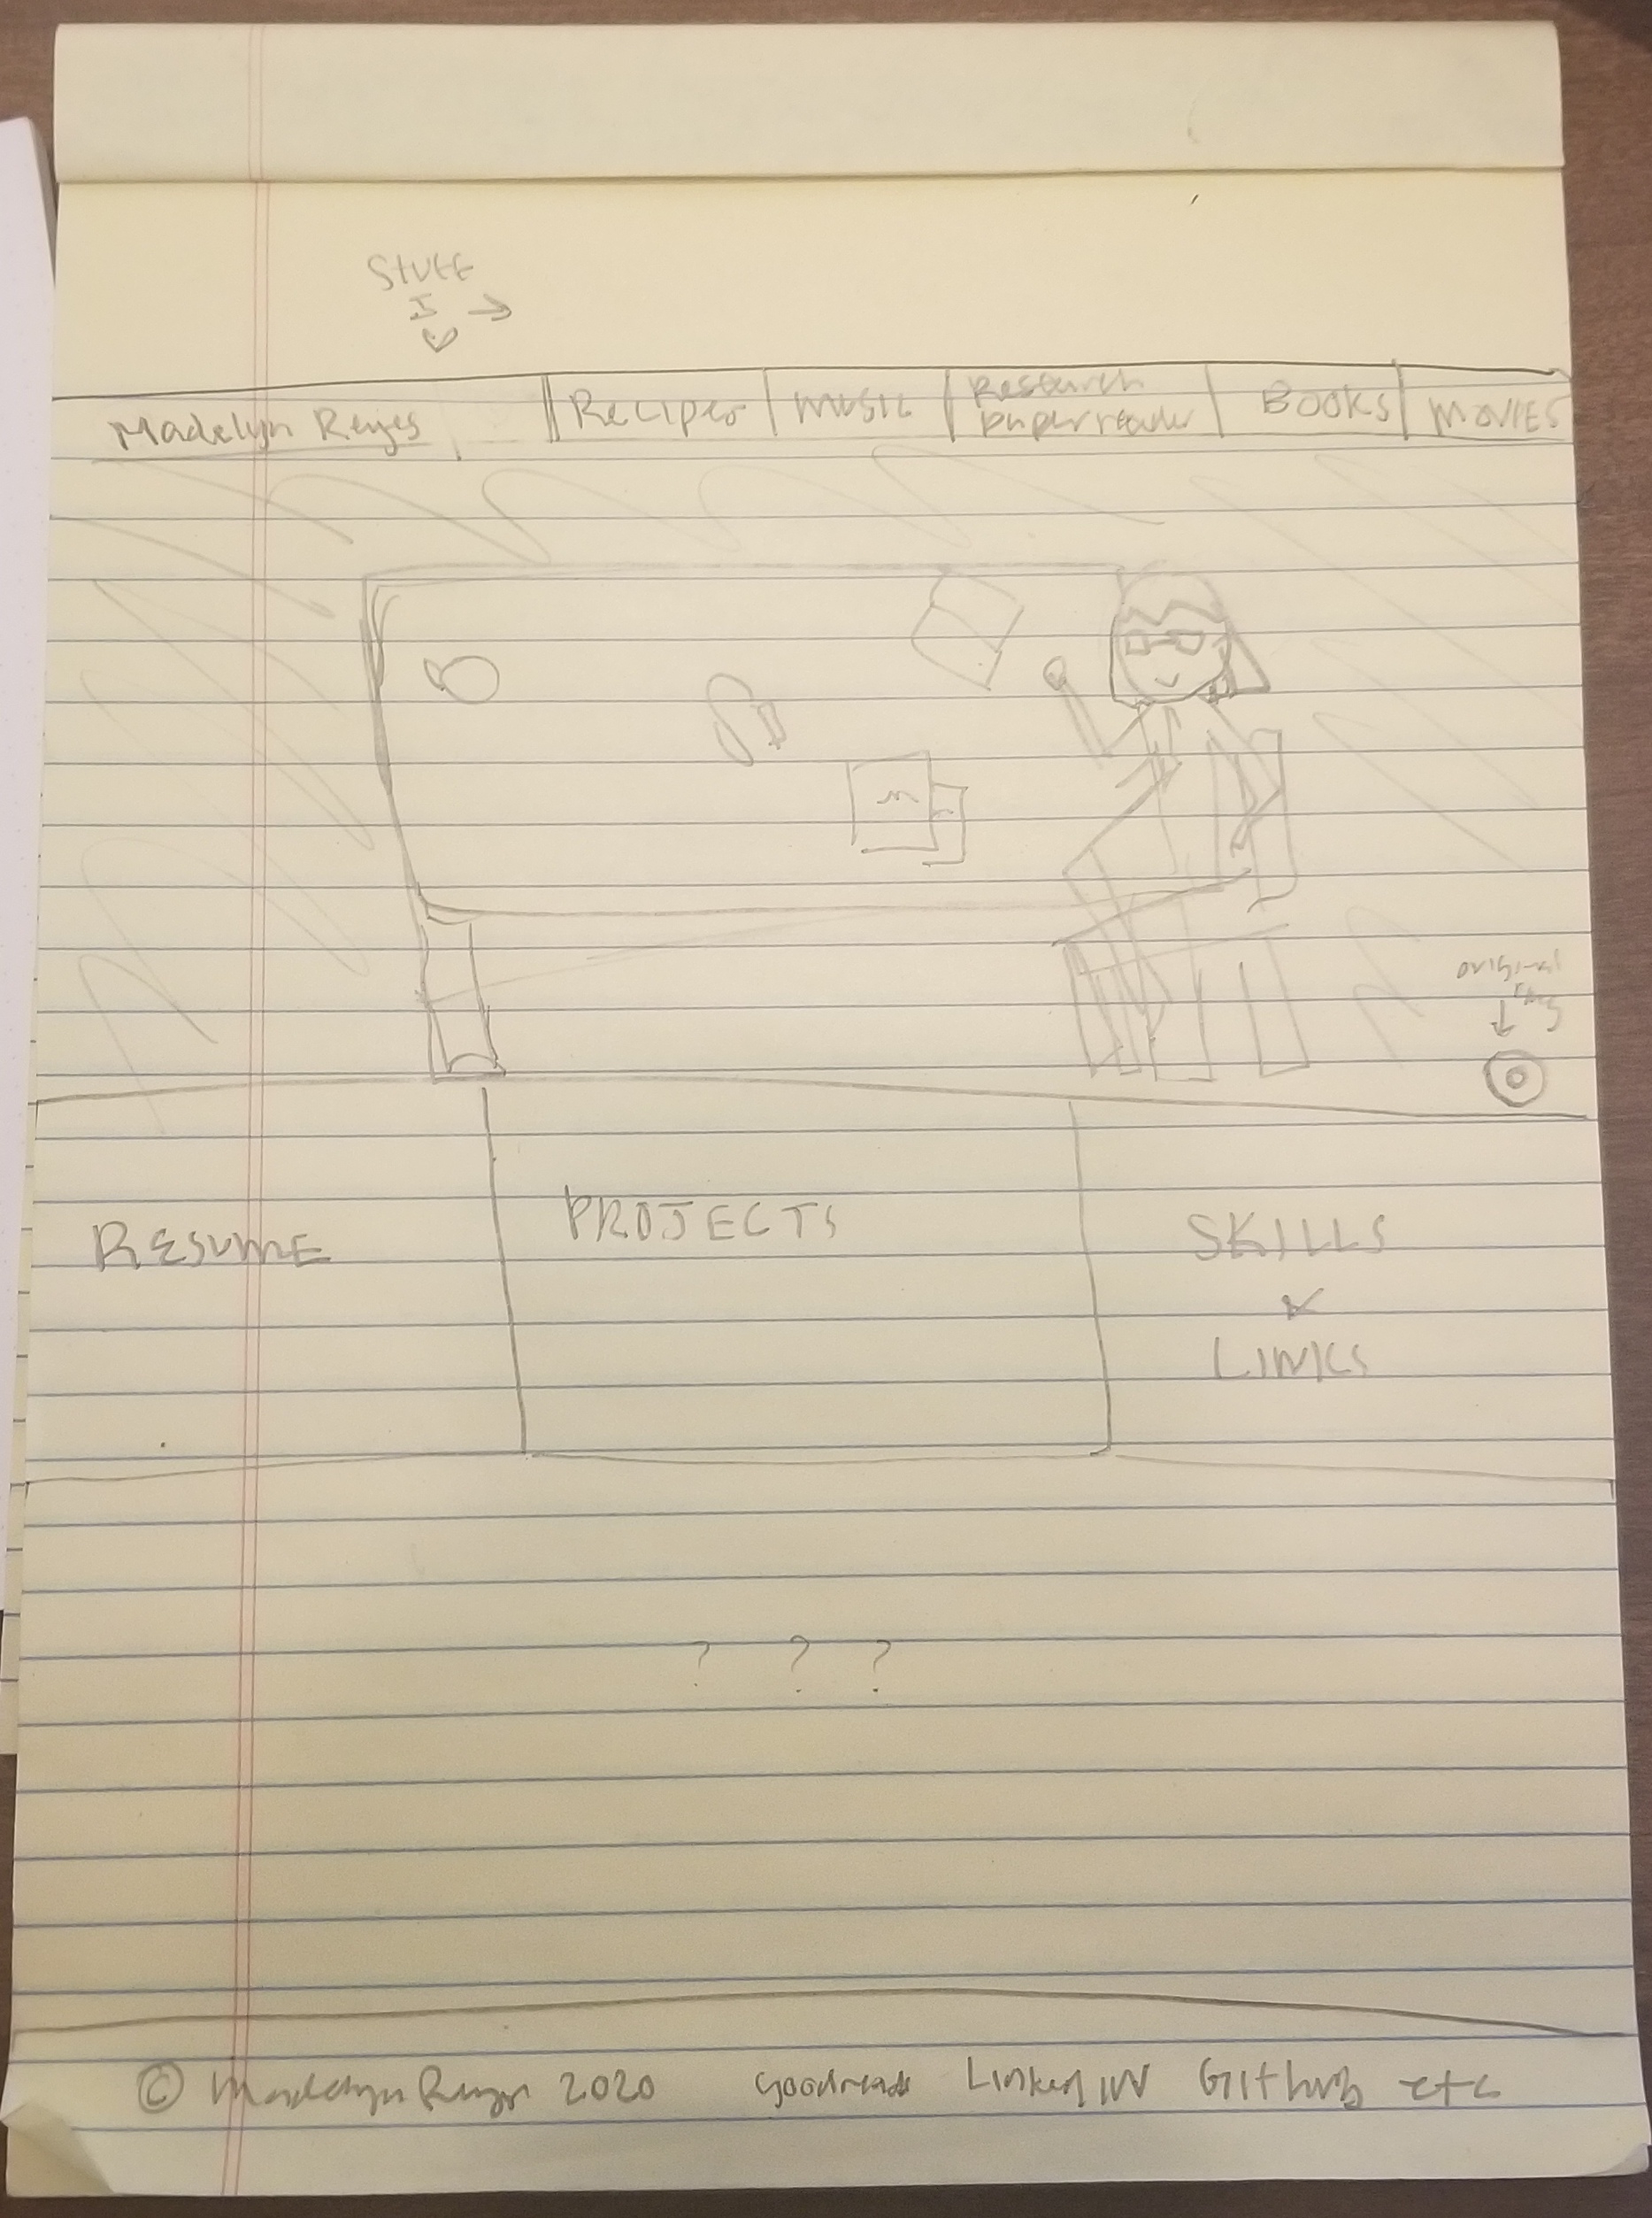 Stuff
I →
♡
Madelyn Reyes
Recipes
MUSIC
Research
paper reader
BOOKS
MOVIES
M
original
↓
RESUME
PROJECTS
SKILLS
&
LINKS
? ? ?
© Madelyn Reyes 2020 goodreads LinkedIN GitHub etc